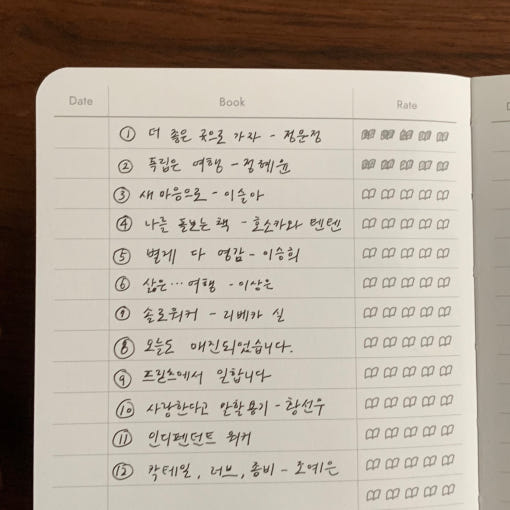 Date Book Rate
① 더 좋은 곳으로 가자 - 정문정
② 독립은 여행 - 정혜윤
③ 새 마음으로 - 이슬아
④ 나를 돌보는 책 - 호소카와 텐텐
⑤ 별게 다 영감 - 이승희
⑥ 삶은… 여행 - 이상은
⑦ 솔로워커 - 리베카 실
⑧ 오늘도 매진되었습니다.
⑨ 프릳츠에서 일합니다
⑩ 사랑한다고 말할 용기 - 황선우
⑪ 인디펜던트 워커
⑫ 칵테일, 러브, 좀비 - 조예은